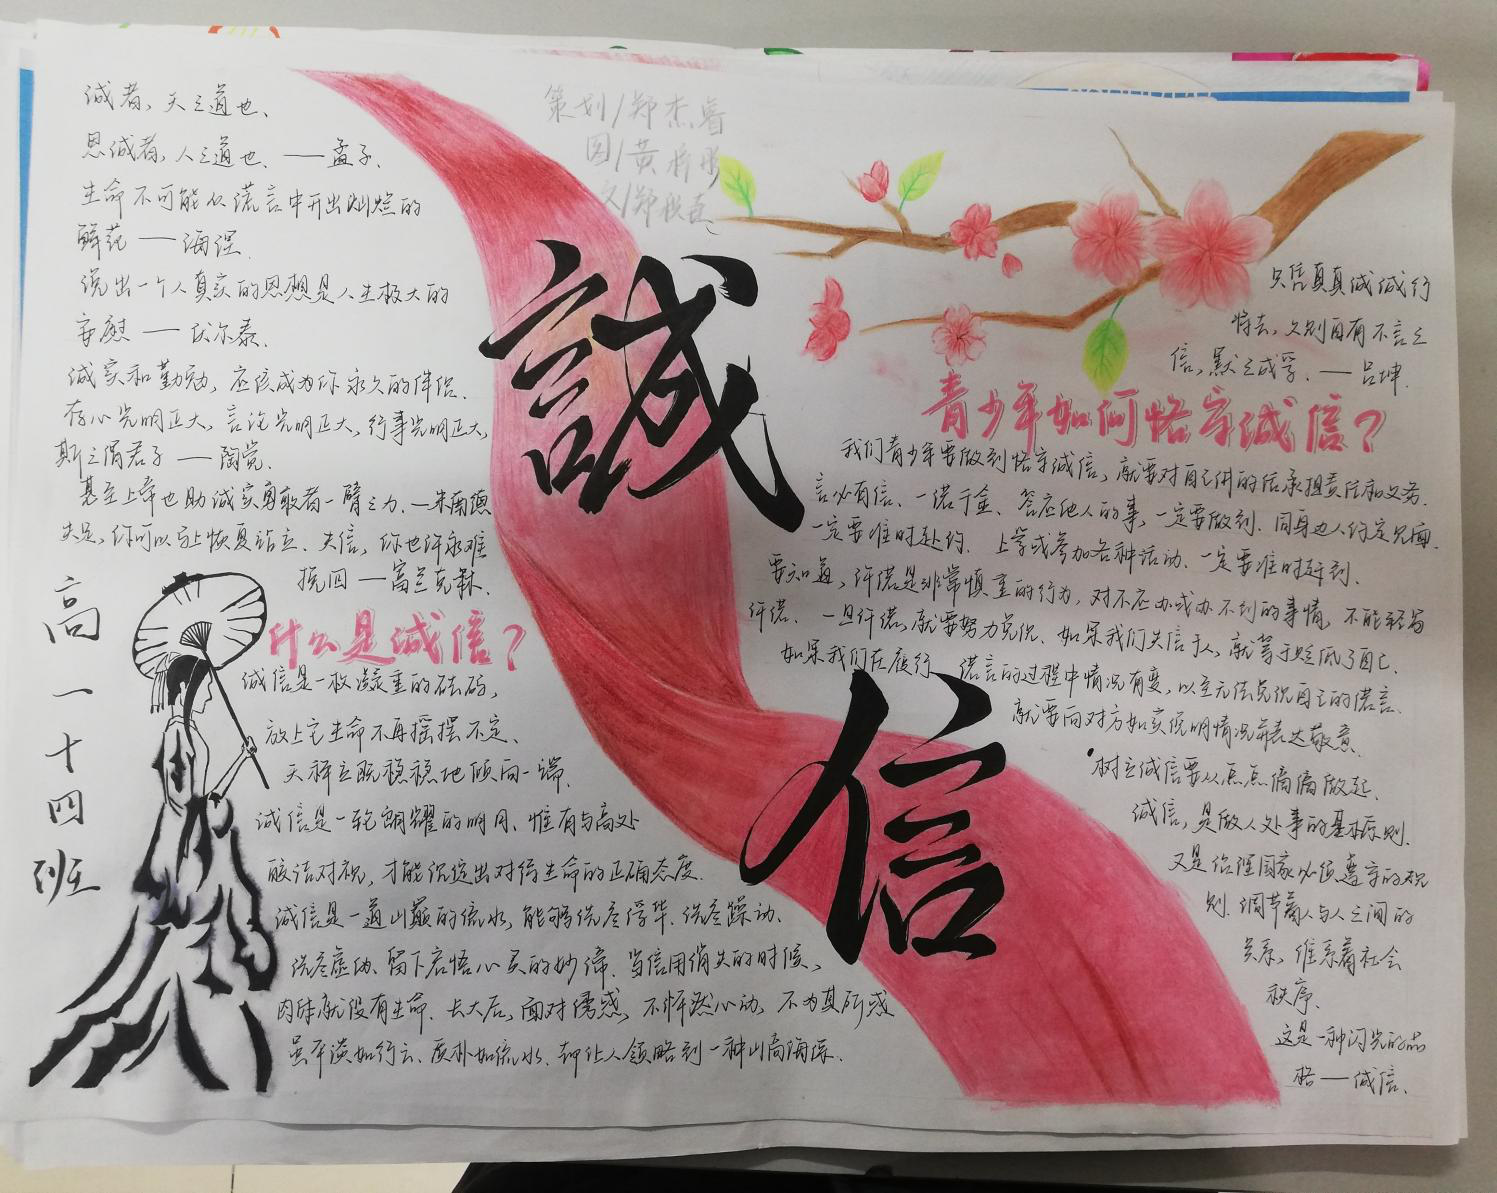 诚者，天之道也、
思诚者，人之道也、——孟子、
生命不可能从谎言中开出灿烂的
鲜花——海涅、
说出一个人真实的思想是人生极大的
安慰——伏尔泰、
诚实和勤勉，应该成为你永久的伴侣、
存心光明正大，言论光明正大，行事光明正大，
斯之谓君子——陶觉、
甚至上帝也助诚实勇敢者一臂之力、—米南德
失足，你可以马上恢复站立、失信，你也许永难
挽回——富兰克林、
高一十四班
什么是诚信？
诚信是一枚凝重的砝码，
放上它生命不再摇摆不定、
天秤立既稳稳地倾向一端、
诚信是一轮朗耀的明月、惟有与高处
皎洁对视，才能沉淀出对待生命的正确态度、
诚信是一道山巅的流水，能够洗尽浮华、洗尽躁动、
洗尽虚伪、留下启悟心灵的妙谛、当信用消失的时候，
肉体就没有生命、长大后，面对诱惑，不怦然心动，不为其所惑
虽平淡如行云、质朴如流水、却让人领略到一种山高海深、
策划/郑杰睿
图/黄
文/郑
誠
信
只凭真真诚诚行
将去，久则自有不言之
信，默之诚孚、——吕坤、
青少年如何恪守诚信？
我们青少年要做到恪守诚信，就要对自己讲的话承担责任和义务、
言必有信、一诺千金、答应他人的事，一定要做到、同身边人约定见面、
一定要准时赴约、上学或参加各种活动、一定要准时赶到、
要知道，许诺是非常慎重的行为，对不应办或办不到的事情，不能轻易
许诺、一旦许诺，就要努力兑现、如果我们失信于人，就等于贬低了自己、
如果我们在履行 诺言的过程中情况有变，以至无法兑现自己的诺言、
就要向对方如实说明情况并表达歉意、
树立诚信要从点点滴滴做起、
诚信，是做人处事的基本原则、
又是治理国家必须遵守的规
则、调节着人与人之间的
关系，维系着社会
秩序、
这是一种闪光的品
格——诚信、